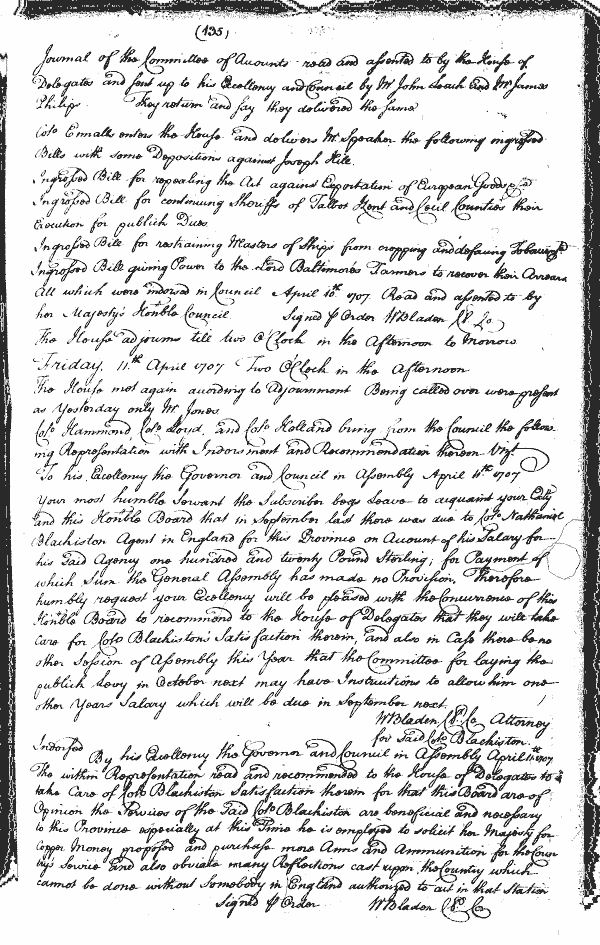 (135)
Journal of the Committee of Accounts read and assented to by the House of
Delegates and sent up to his Excellency and Council by Mr John Leach and Mr James
Philips They return and say they delivered the same
Colo Ennalls enters the House and delivers Mr Speaker the following ingrossed
Bills with some Depositions against Joseph Hill.
Ingrossed Bill for repealing the Act against Exportation of European Goods &ca
Ingrossed Bill for continuing Sheriffs of Talbot Kent and Cecil Counties their
Execution for publick Dues
Ingrossed Bill for restraining Masters of Ships from cropping and defacing Tobaccos
Ingrossed Bill giving Power to the Lord Baltimores Farmers to recover their Arrears
All which were indorsed in Council April 10th 1707 Read and assented to by
her Majesty's Honble Council. Signed p Order WBladen Cl. Co.
The House adjourns till two O'Clock in the Afternoon to Morrow
Friday, 11th April 1707 Two O'Clock in the Afternoon
The House met again according to Adjournment Being called over were present
as Yesterday only Mr Jones
Colo Hammond, Colo Lloyd, and Colo Holland bring from the Council the follow-
ing Representation with Indorsment and Recommendation thereon Vizt
To his Excellency the Governor and Council in Assembly April 11th 1707
Your most humble Servant the Subscriber begs Leave to acquaint your Excy
and this Honble Board that in September last there was due to Colo Nathaniel
Blackiston Agent in England for this Province on Account of his Salary for
his said Agency one hundred and twenty Pound Sterling; for Payment of
which Sum the General Assembly has made no Provision. Therefore
humbly request your Excellency will be pleased with the Concurrence of this
Honble Board to recommend to the House of Delegates that they will take
care for Colo Blackiston's Satisfaction therein, and also in Case there be no
other Session of Assembly this Year that the Committee for laying the
publick Levy in October next may have Instructions to allow him one
other Years Salary which will be due in September next.
WBladen Cl. Co. Attorney
for said Colo Blackiston.
Indorsed By his Excellency the Governor and Council in Assembly April 11th 1707
The within Representation read and recommended to the House of Delegates to
take Care of Colo Blackiston Satisfaction therein for that this Board are of
Opinion the Services of the said Colo Blackiston are beneficial and necessary
to this Province especially at this Time he is employed to solicit her Majesty for
Copper Money proposed and purchase more Arms and Ammunition for the Coun
try's Service and also obviate many Reflections cast upon the Country which
cannot be done without Somebody in England authorized to act in that Station
Signed p Order WBladen Cl. Co.